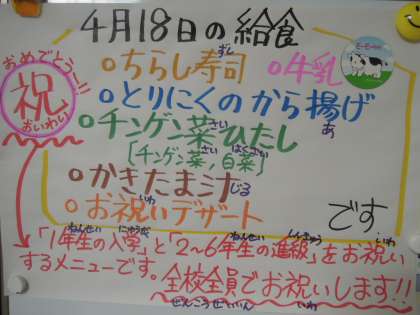 4月18日の給食
おめでとうー!!
祝
おいわい
ちらし寿司
ずし
牛乳
とりにくのから揚げ
あ
チンゲン菜ひたし
さい
[チンゲン菜,白菜]
さい はくさい
かきたま汁
じる
お祝いデザート
いわ
です
「1年生の入学」と「2~6年生の進級」をお祝い
ねんせい にゅうがく ねんせい しんきゅう いわ
するメニューです。全校全員でお祝いします!!
ぜんこうぜんいん いわ